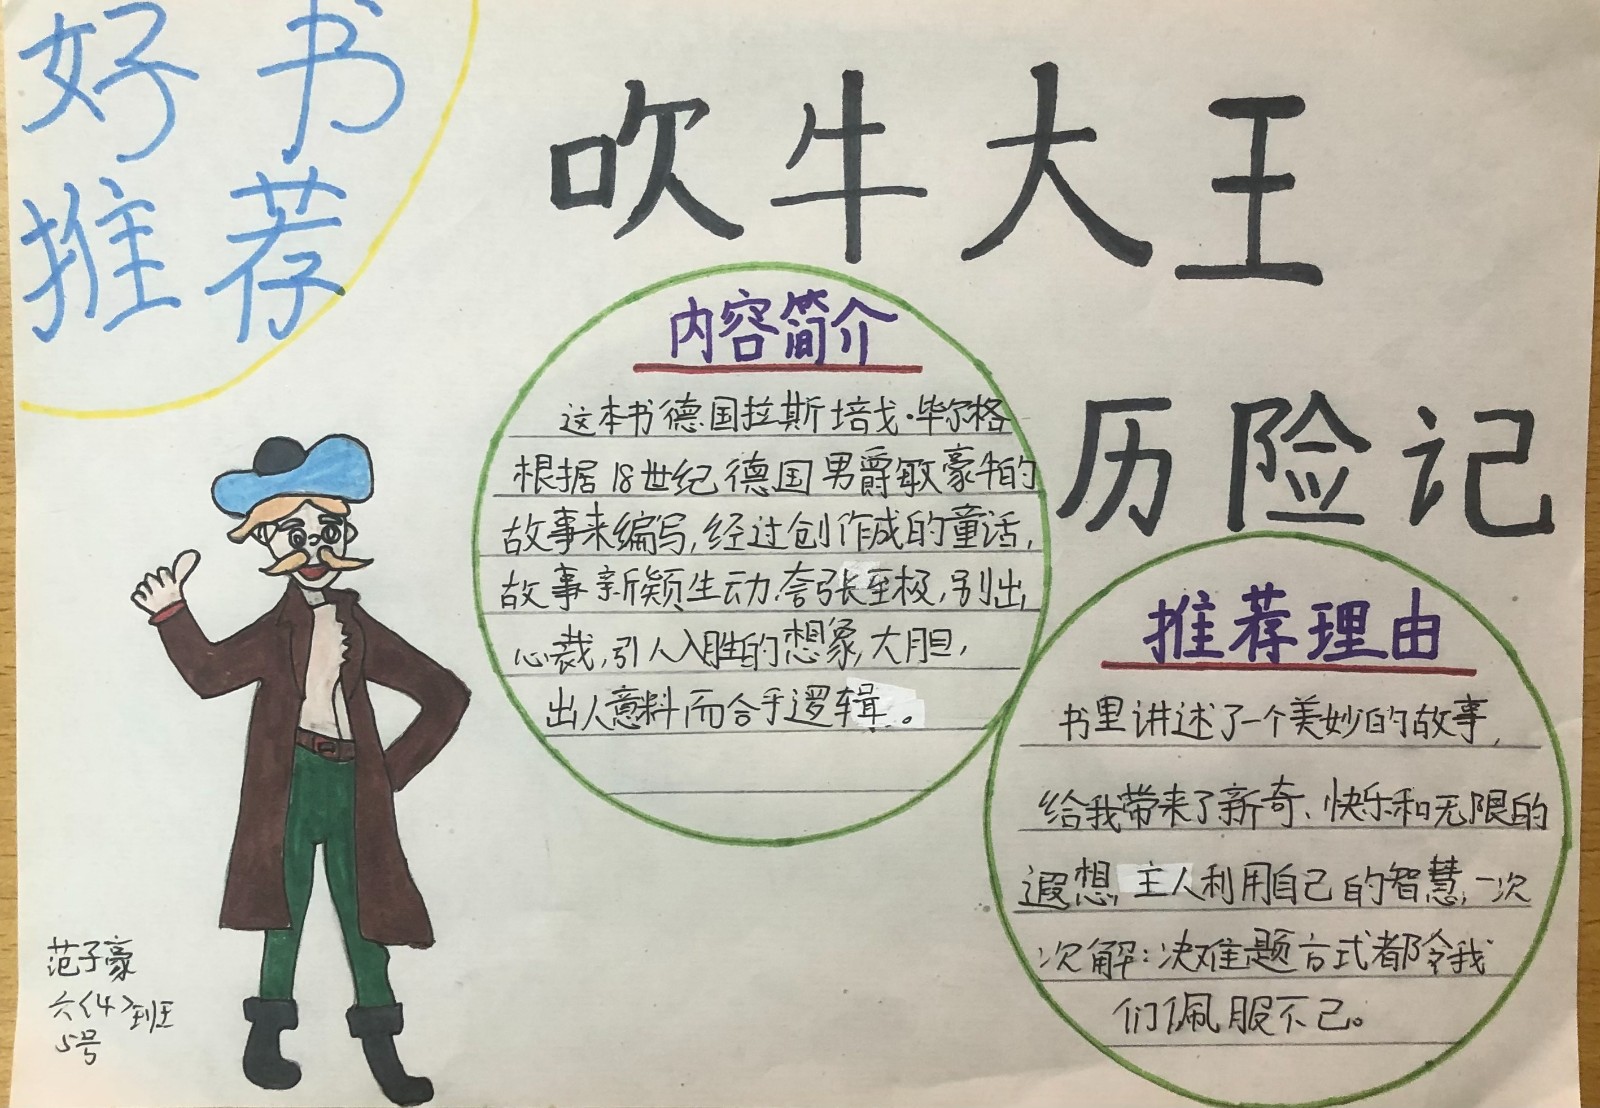 好书
推荐
吹牛大王
历险记
内容简介
这本书德国拉斯培戈·毕尔格
根据18世纪德国男爵敏豪牛的
故事来编写,经过创作成的童话,
故事新颖生动.夸张至极,别出
心裁,引人入胜的想象,大胆,
出人意料而合乎逻辑。
推荐理由
书里讲述了一个美妙的故事,
给我带来了新奇、快乐和无限的
遐想,主人利用自己的智慧,一次
次解:决难题方式都令我
们佩服不已。
范子豪
六<4>班
5号